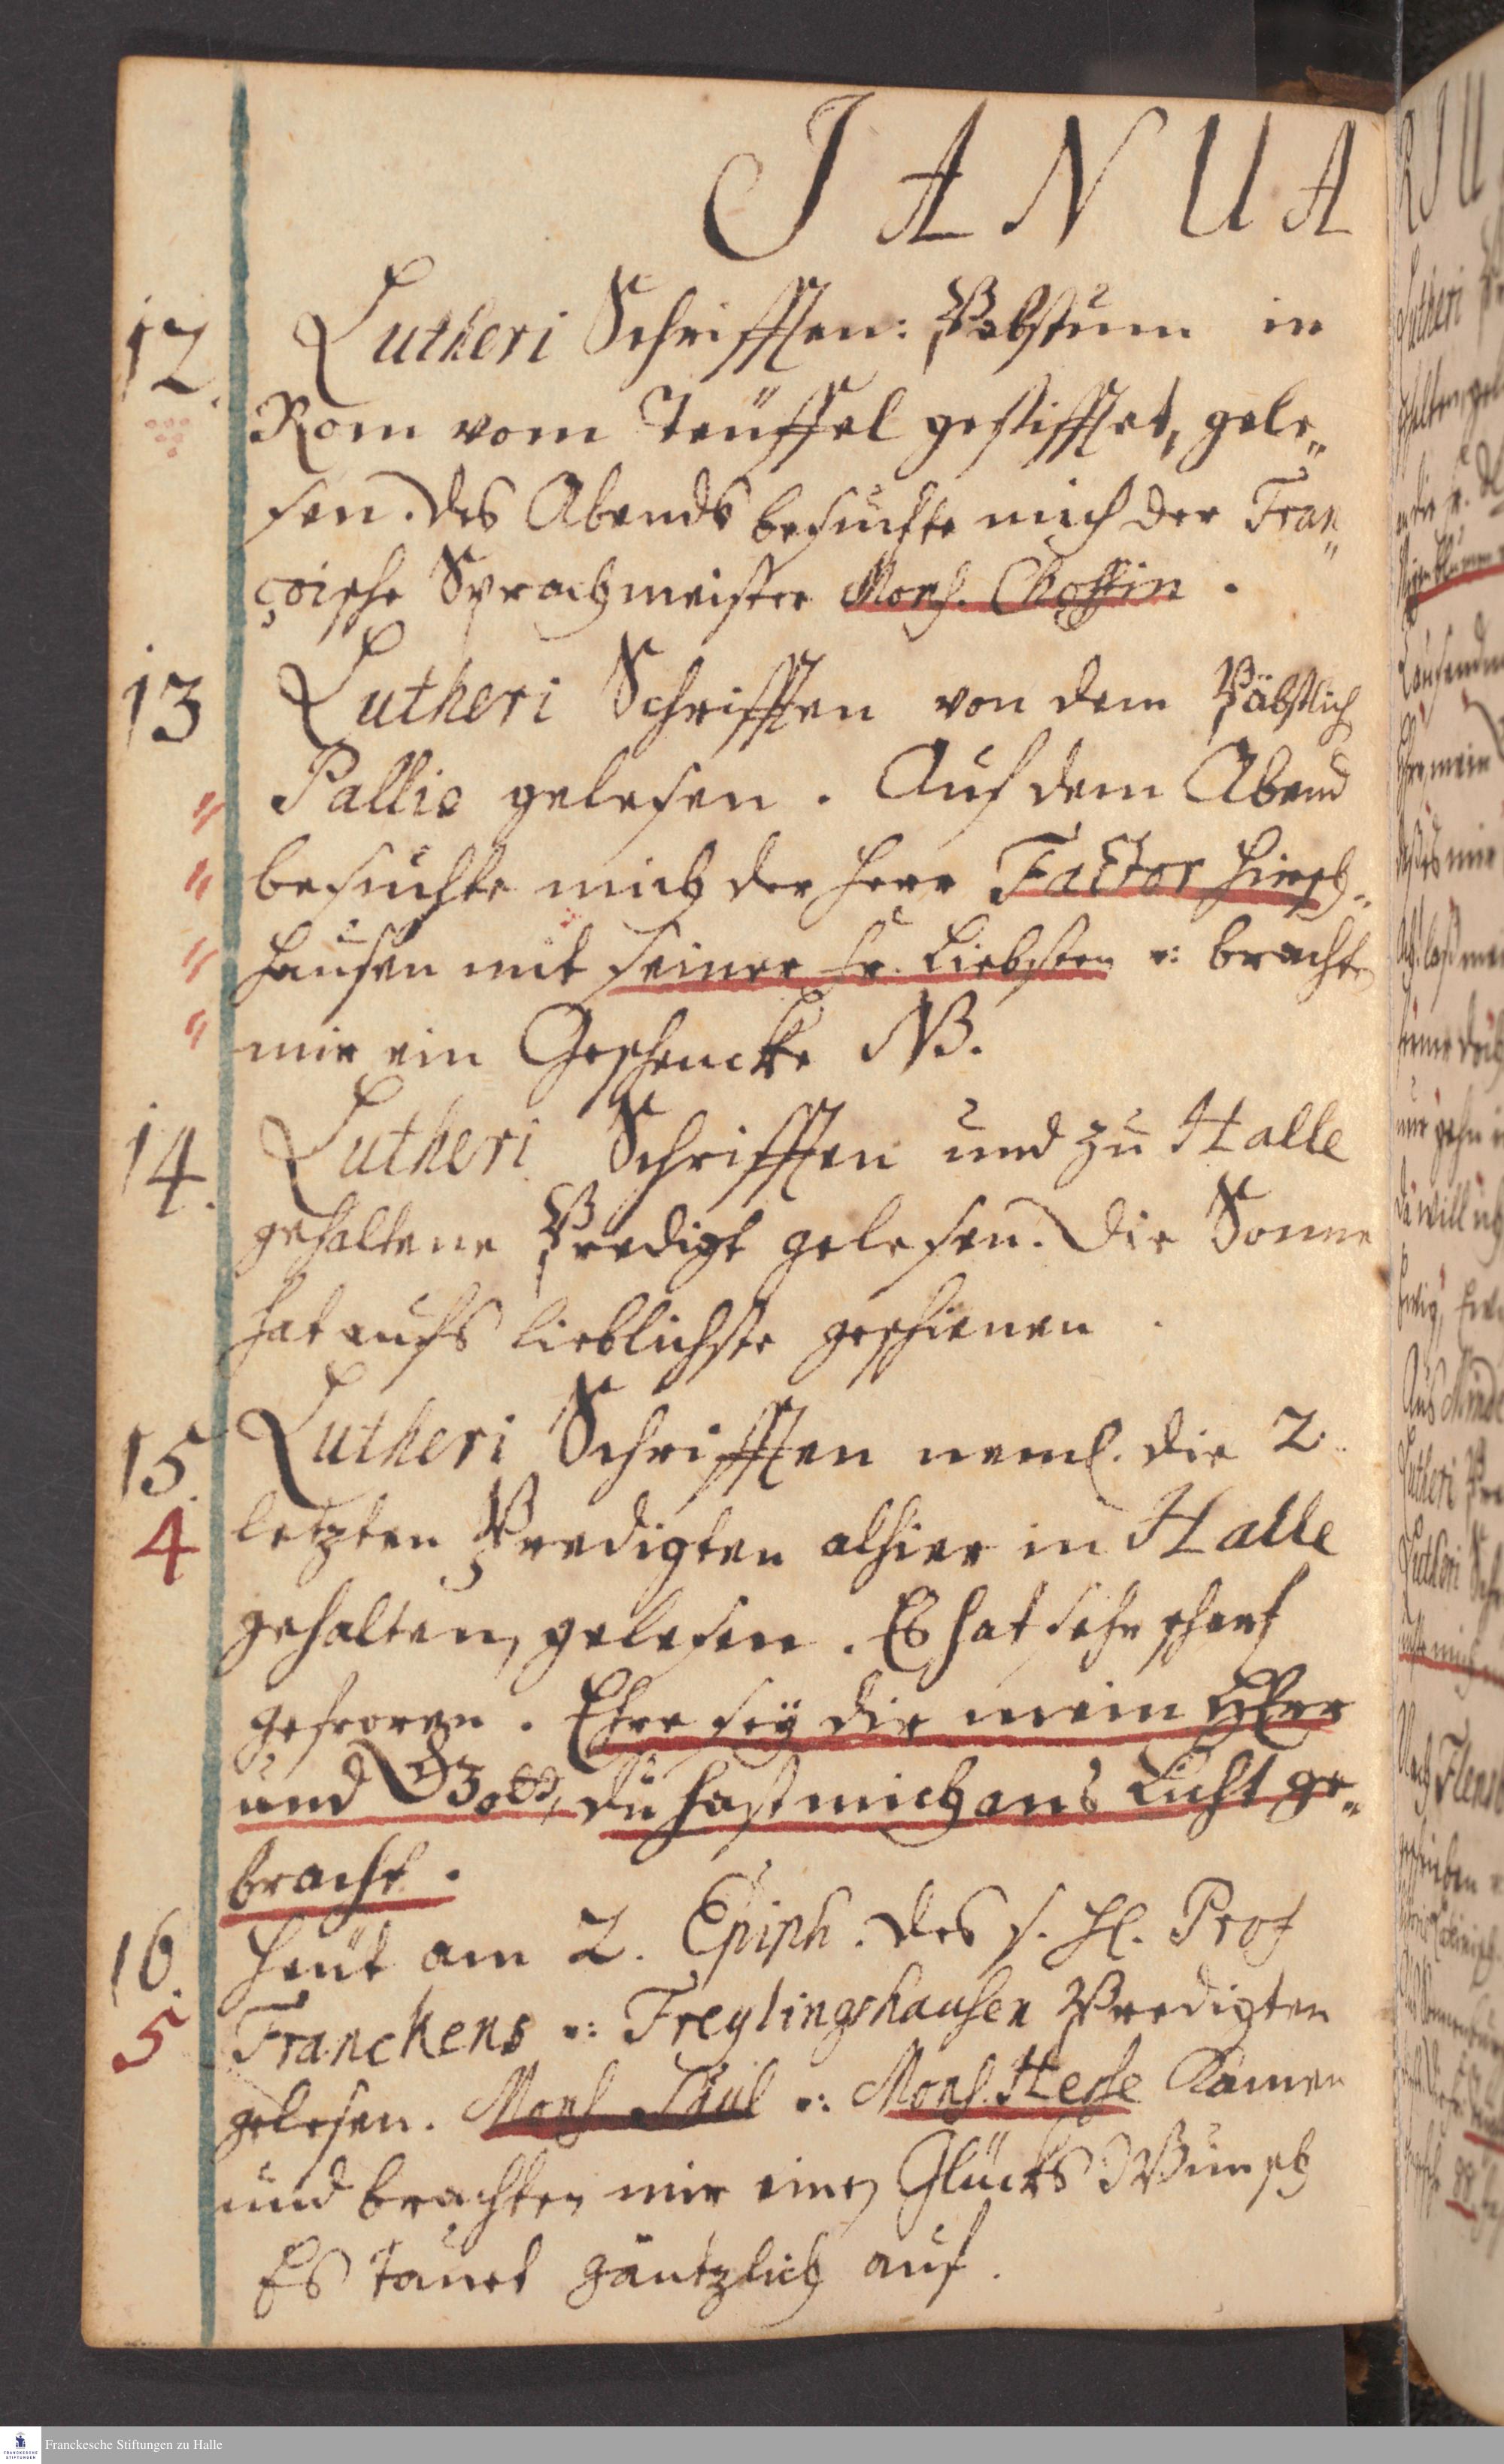 JANUA
12. Lutheri Schrifften: Pabstum in
Rom vom Teüffel gestifftet, gele„
sen. Des Abends besuchte mich der Fran„
çoische Sprachmeister Mons. Choffin.
13 Lutheri Schrifften von dem Päbstlich
Pallio gelesen. Auf dem Abend
besuchte mich der Herr Factor Hirsch„
hausen mit seiner Fr. Liebsten u: brachte
mir ein Geschencke NB.
14. Lutheri Schrifften und zu Halle
gehaltene Predigt gelesen. Die Sonne
hat aufs lieblichste geschienen.
15. Lutheri Schrifften neml. die 2.
4 letzten Predigten alhier in Halle
gehalten, gelesen. Es hat sehr scharf
gefroren. Ehre sey dir mein HErr
und Gott, du hast mich ans Licht ge„
bracht.
16. Heut am 2. Epiph. des s. Hl. Prof
5 Franckens u: Freylingshausen Predigten
gelesen. Mons. Paul u: Mons. Hesse kamen
und brachten mir einen Glücks Wunsch
Es tauet gäntzlich auf.
Franckesche Stiftungen zu Halle